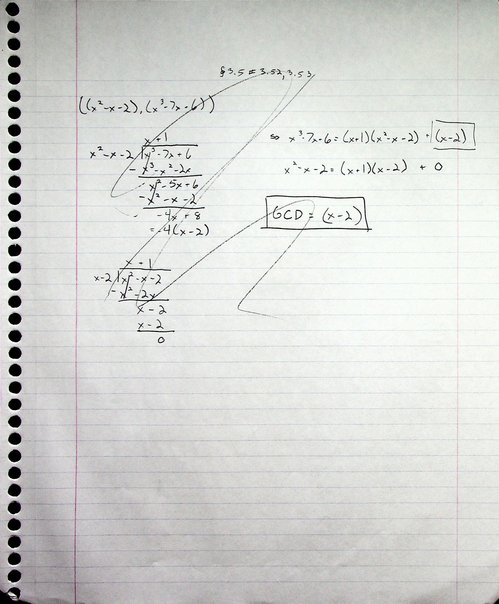 §3.5 # 3.52, 3.53
((x²-x-2), (x³-7x+6))
x + 1
x²-x-2 | x³-7x+6
- x³-x²-2x
x²-5x+6
- x²-x-2
-4x + 8
= -4(x-2)
x + 1
x-2 | x²-x-2
- x²-2x
x - 2
x - 2
0
⇒ x³-7x+6 = (x+1)(x²-x-2) + (x-2)
x²-x-2 = (x+1)(x-2) + 0
GCD = (x-2)